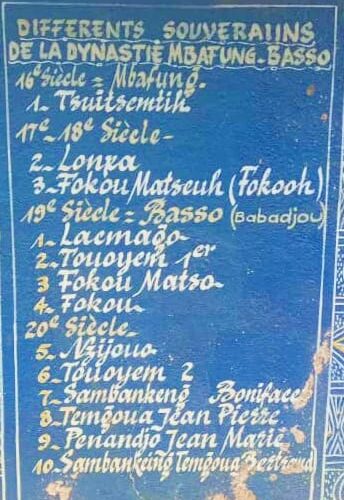 DIFFERENTS SOUVERAIINS
DE LA DYNASTIE MBAFUNG-BASSO
16e Siècle = Mbafung.
1- Tsuitsemtih
17e - 18e Siècle-
2- Lonpa
3- Fokou Matseuh (Fokooh)
19e Siècle = Basso (Babadjou)
1- Lacmago
2- Touoyem 1er
3 Fokou Matso
4- Fokou
20e Siècle-
5- Nzijouo
6- Touoyem 2
7- Sambankeng Boniface
8- Temgoua Jean Pierre
9- Penandjo Jean Marie
10- Sambankeing Temgoua Bertrand